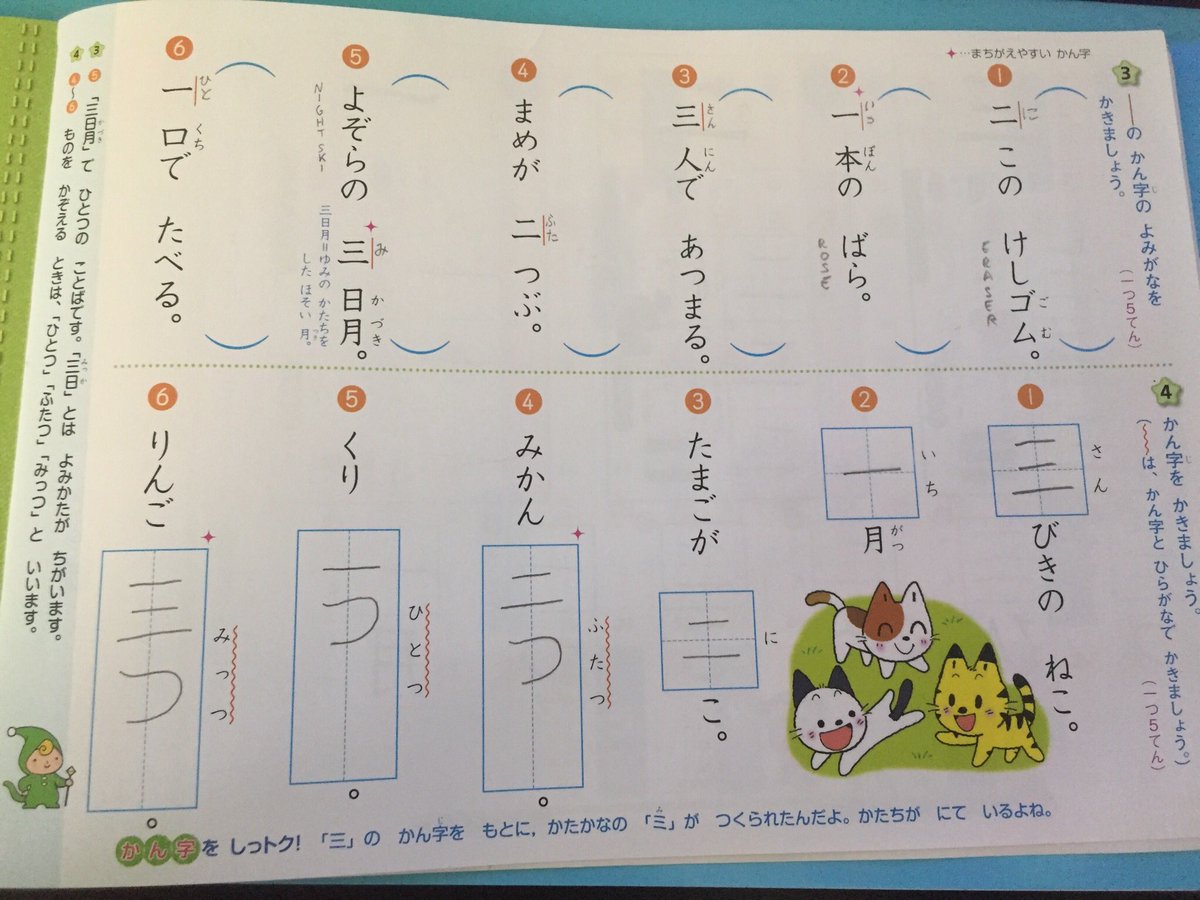 ✦…まちがえやすい かん字
3
――の かん字の よみがなを
かきましょう。
(一つ5てん)
1 二この けしゴム。
に
ごむ
ERASER
2 一本の ばら。
いっ
ぽん
ROSE
3 三人で あつまる。
さん
にん
4 まめが 二つぶ。
ふた
5 よぞらの 三日月。
み
かづき
NIGHT SKI
三日月=ゆみの かたちを
した ほそい 月。
つき
6 一口で たべる。
ひと
くち
4
かん字を かきましょう。
じ
(〜〜は、かん字と ひらがなで かきましょう。)
(一つ5てん)
1 三びきの ねこ。
さん
2 一月
いち
がつ
3 たまごが 二こ。
に
4 みかん 二つ。
ふたつ
5 くり 一つ。
ひとつ
6 りんご 三つ。
みっつ
かん字を しっトク! 「三」の かん字を もとに,かたかなの「ミ」が つくられたんだよ。かたちが にて いるよね。
3 5 「三日月」で ひとつの ことばです。「三日」とは よみかたが ちがいます。
かづき
みっか
4 4〜6 ものを かぞえる ときは、「ひとつ」「ふたつ」「みっつ」と いいます。